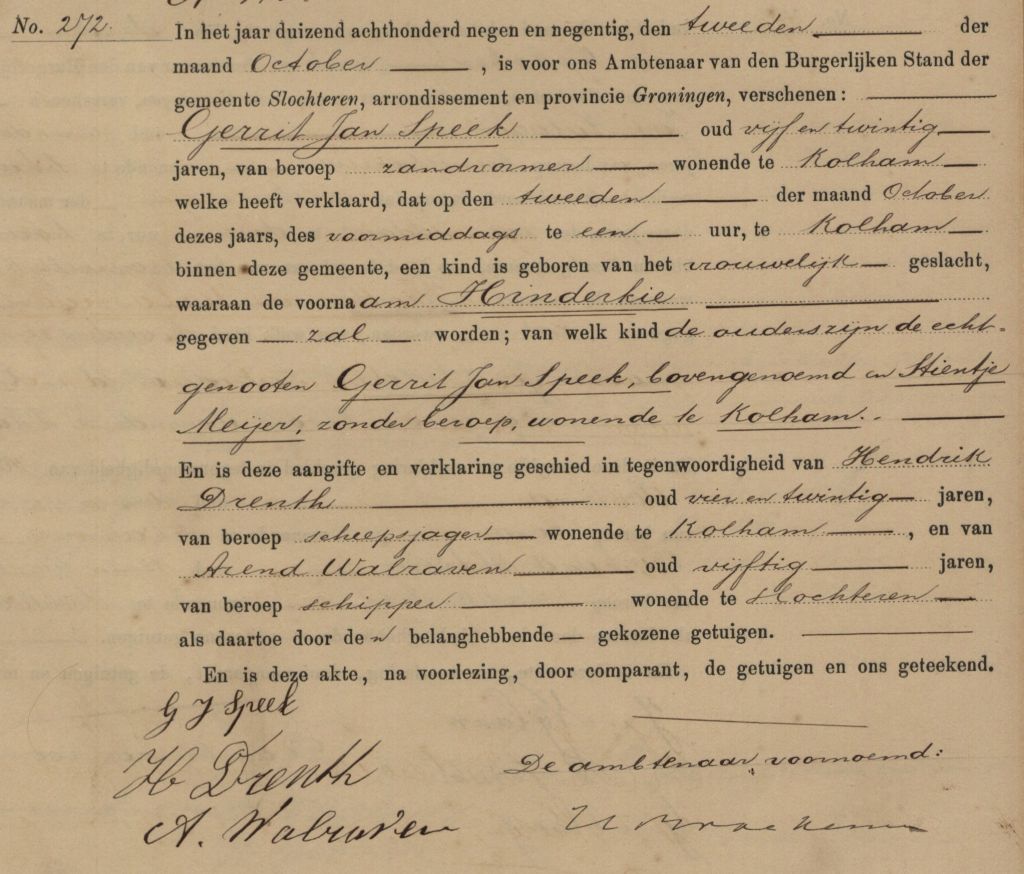 No. 272.
In het jaar duizend achthonderd negen en negentig, den tweeden der
maand October , is voor ons Ambtenaar van den Burgerlijken Stand der
gemeente Slochteren, arrondissement en provincie Groningen, verschenen:
Gerrit Jan Speek oud vijf en twintig
jaren, van beroep zandvormer wonende te Kolham
welke heeft verklaard, dat op den tweeden der maand October
dezes jaars, des voormiddags te een uur, te Kolham
binnen deze gemeente, een kind is geboren van het vrouwelijk geslacht,
waaraan de voornaam Hinderkie
gegeven zal worden; van welk kind de ouders zijn de echt-
genooten Gerrit Jan Speek, bovengenoemd en Stientje
Meijer, zonder beroep, wonende te Kolham.
En is deze aangifte en verklaring geschied in tegenwoordigheid van Hendrik
Drenth oud vier en twintig jaren,
van beroep scheepsjager wonende te Kolham , en van
Arend Walraven oud vijftig jaren,
van beroep schipper wonende te Slochteren
als daartoe door den belanghebbende gekozene getuigen.
En is deze akte, na voorlezing, door comparant, de getuigen en ons geteekend.
G J Speek
H Drenth
De ambtenaar voornoemd:
A. Walraven